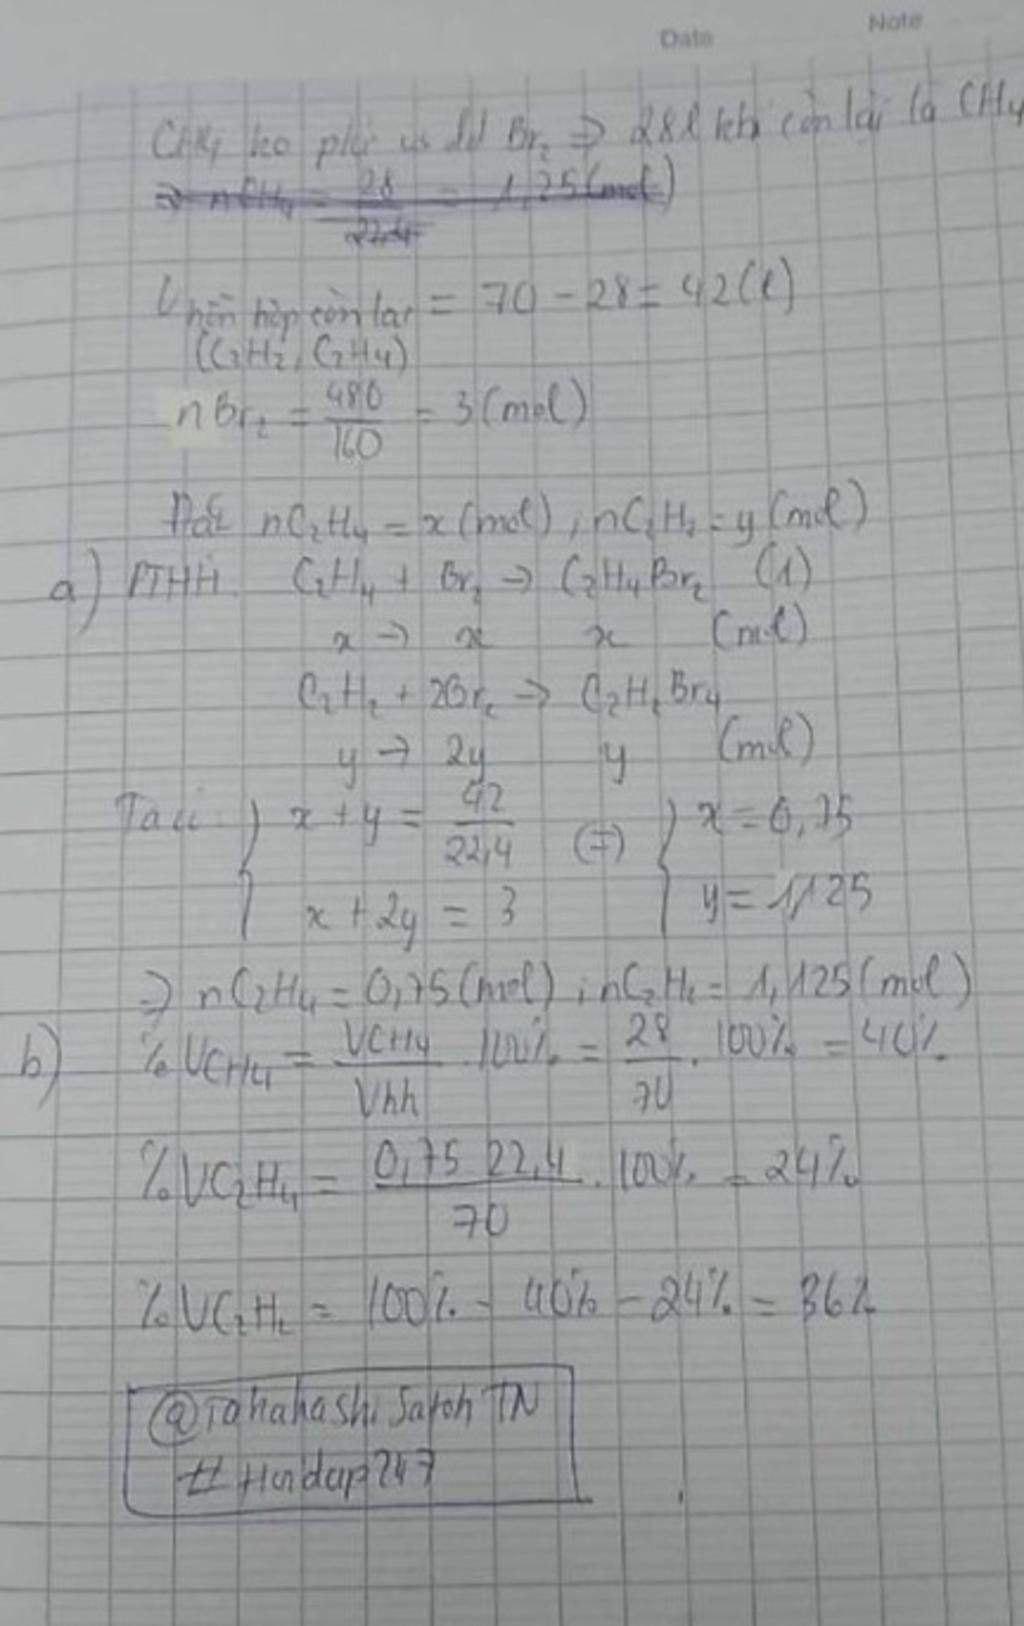 Date Note
CH4 ko pứ vs dd Br2 => 28l khí còn lại là CH4
=> nCH4 = 28/22,4 = 1,25 (mol)
V hỗn hợp còn lại = 70 - 28 = 42 (l)
(C2H2, C2H4)
nBr2 = 480/160 = 3 (mol)
Đặt nC2H4 = x (mol), nC2H2 = y (mol)
a) PTHH C2H4 + Br2 -> C2H4Br2 (1)
x -> x x (mol)
C2H2 + 2Br2 -> C2H2Br4
y -> 2y y (mol)
Ta có: { x + y = 42/22,4 (=) { x = 0,75
x + 2y = 3 y = 1,125
=> nC2H4 = 0,75 (mol), nC2H2 = 1,125 (mol)
b) %VCH4 = VCH4/Vhh . 100% = 28/70 . 100% = 40%
%VC2H4 = 0,75 22,4/70 . 100% = 24%
%VC2H2 = 100% - 40% - 24% = 36%
@Takahashi Satoh TN
#Hoidap247